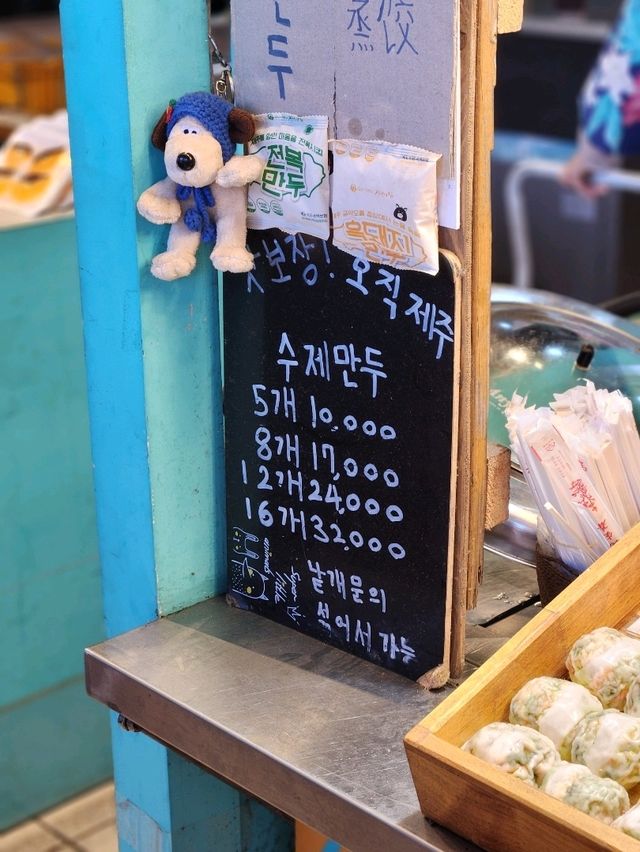 만두
蒸餃
전복
만두
흑돼지
맛보장! 오직 제주
수제만두
5개 10,000
8개 17,000
12개 24,000
16개 32,000
낱개문의
섞어서 가능